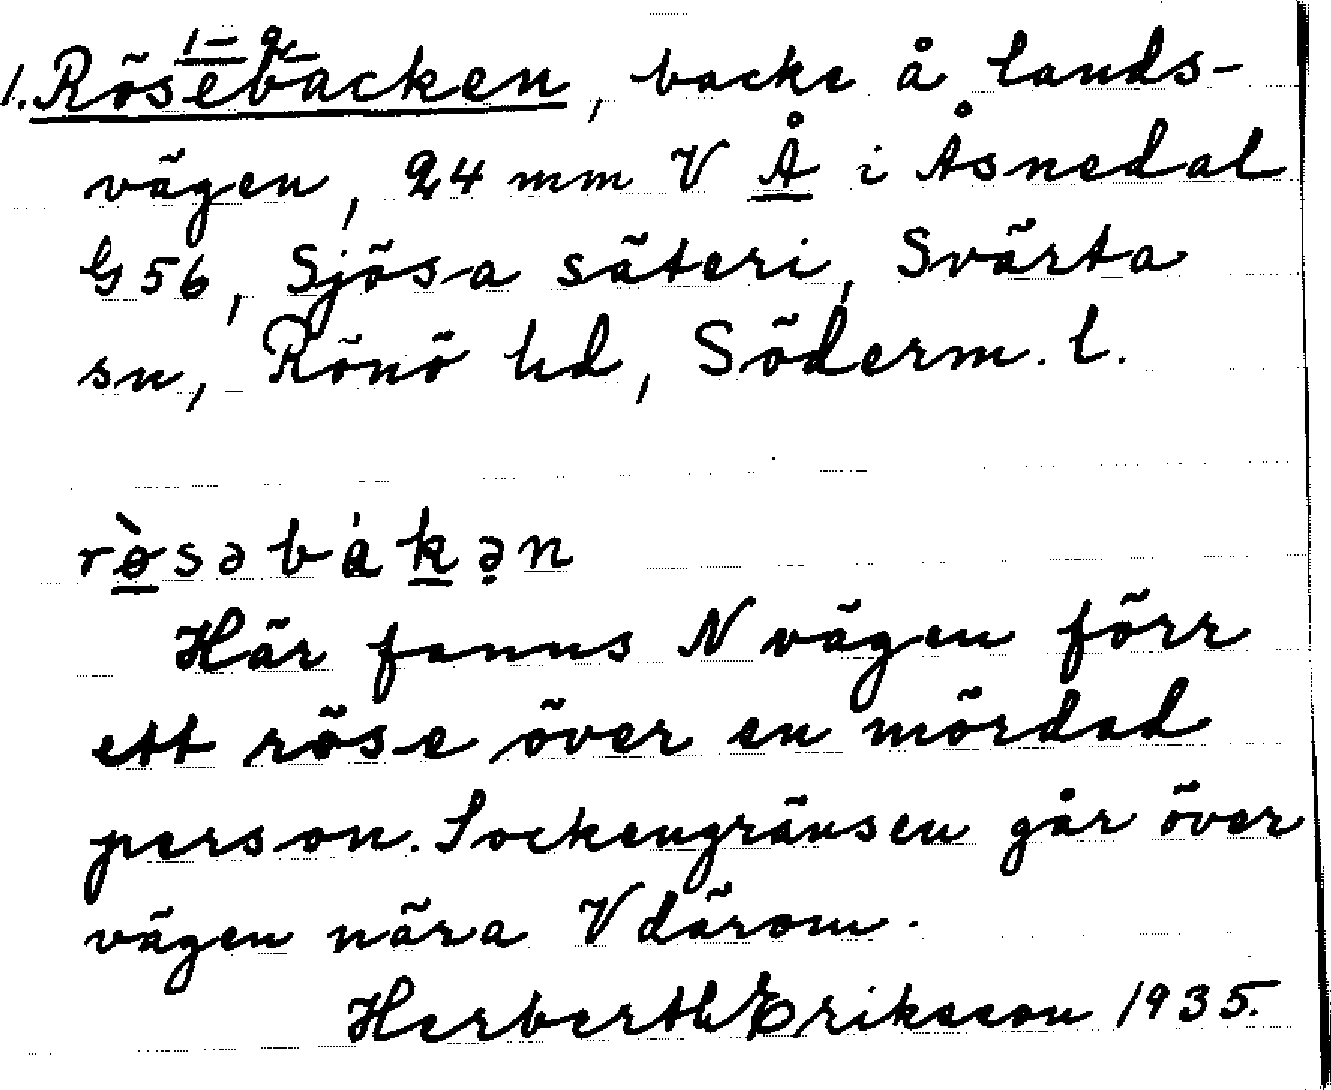 1–2
1. Rösebacken, backe å lands-
vägen, 24 mm V Å i Åsnedal
G 56, Sjösa säteri, Svärta
sn, Rönö hd, Söderm. l.
rø̀səbákə̣n
Här fanns N vägen förr
ett röse över en mördad
person. Sockengränsen går över
vägen nära V därom.
Herberth Eriksson 1935.